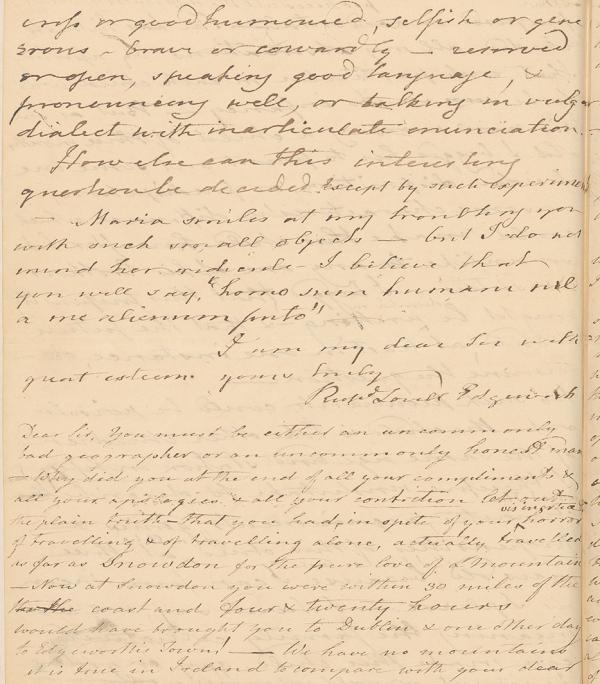 cross or good humoured, selfish or gene
rous - brave or cowardly - reserved
or open, speaking good language, &
pronouncing well, or talking in vulgar
dialect with inarticulate enunciation.
How else can this interesting
question be decided except by such experiments
- Maria smiles at my troubling you
with such small objects - but I do not
mind her ridicule - I believe that
you will say, "homo sum humani nil
a me alienum puto"
I am my dear Sir with
great esteem yours truly
Richd Lovell Edgeworth
Dear Sir, You must be either an uncommonly
bad geographer or an uncommonly honest man
- Why did you at the end of all your compliments &
all your apologies & all your contrition let out
the plain truth - that you had, in spite of your horror
of travelling & of travelling alone, actually travelled
as far as Snowdon for the pure love of a Mountain
- Now at Snowdon you were within 30 miles of the
the coast and four & twenty hours
would have brought you to Dublin & one other day
to Edgeworth's Town! - We have no mountains
it is true in Ireland to compare with your dear